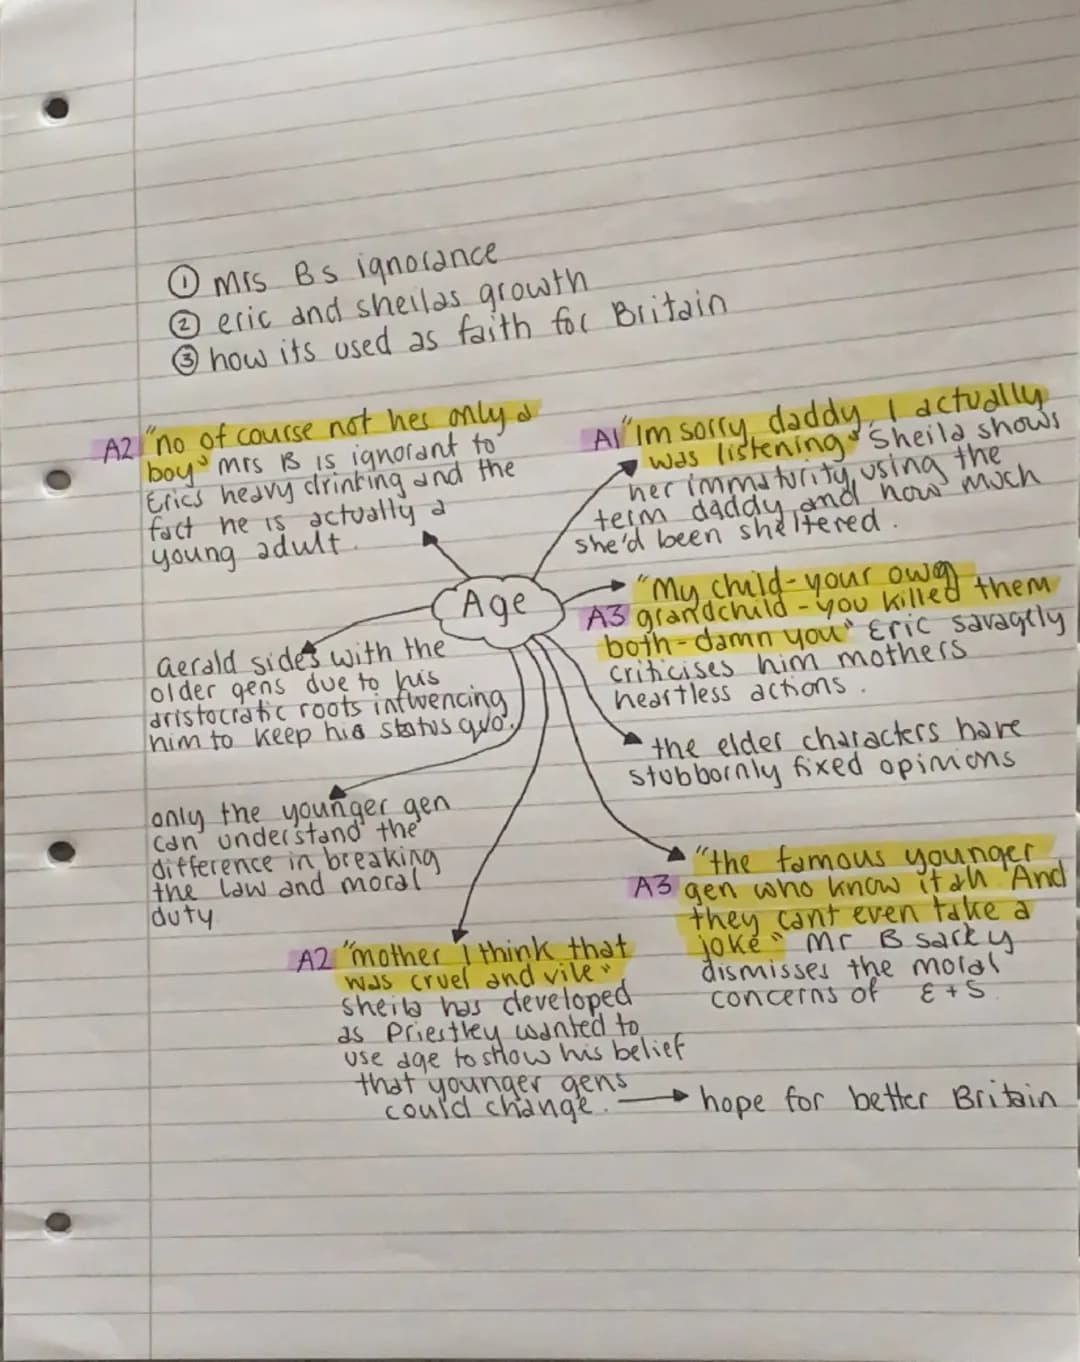 ① mrs Bs ignorance
② eric and sheilas growth
③ how its used as faith for Britain
A2 "no of course not hes only a
boy" mrs B is ignorant to
Erics heavy drinking and the
fact he is actually a
young adult.
A1 "Im sorry daddy, I actually
was listening" Sheila shows
her immaturity, using the
term daddy, and how much
she'd been sheltered.
Age
"My child- your own
A3 grandchild - you killed them
both - damn you" Eric savagely
criticises him mothers
heartless actions.
Gerald sides with the
older gens due to his
aristocratic roots influencing
him to keep his status quo.
the elder characters have
stubbornly fixed opinions
only the younger gen
can understand the
difference in breaking
the law and moral
duty
"the famous younger
A3 gen who know it all. And
they cant even take a
joke" Mr B sarky
dismisses the moral
concerns of E + S.
A2 "mother I think that
was cruel and vile"
Sheila has developed
as Priestley wanted to
use age to show his belief
that younger gens
could change. → hope for better Britain